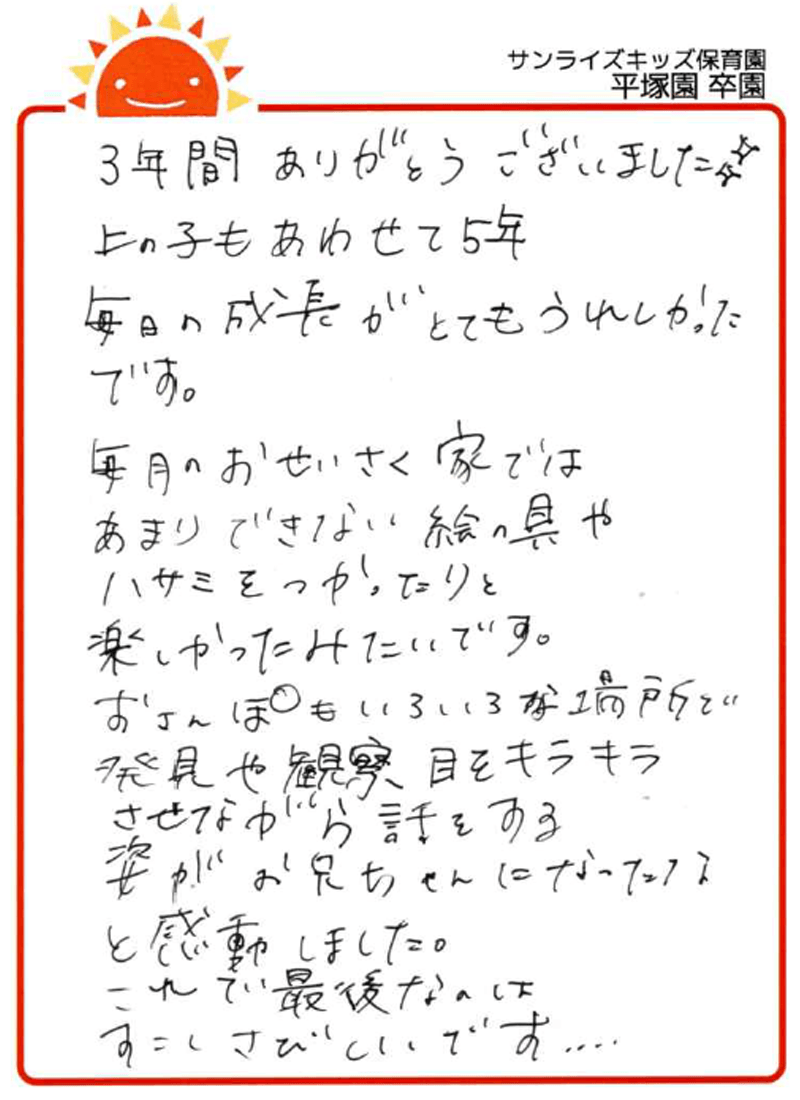 サンライズキッズ保育園
平塚園 卒園
3年間 ありがとう ございました
上の子もあわせて5年
毎日の成長がとてもうれしかった
です。
毎月のおせいさく 家では
あまりできない 絵の具や
ハサミをつかったりと
楽しかったみたいです。
おさんぽもいろいろな場所で
発見や観察、目をキラキラ
させながら話をする
姿がお兄ちゃんになったな
と感動しました。
これで最後なのは
すこしさびしいです....